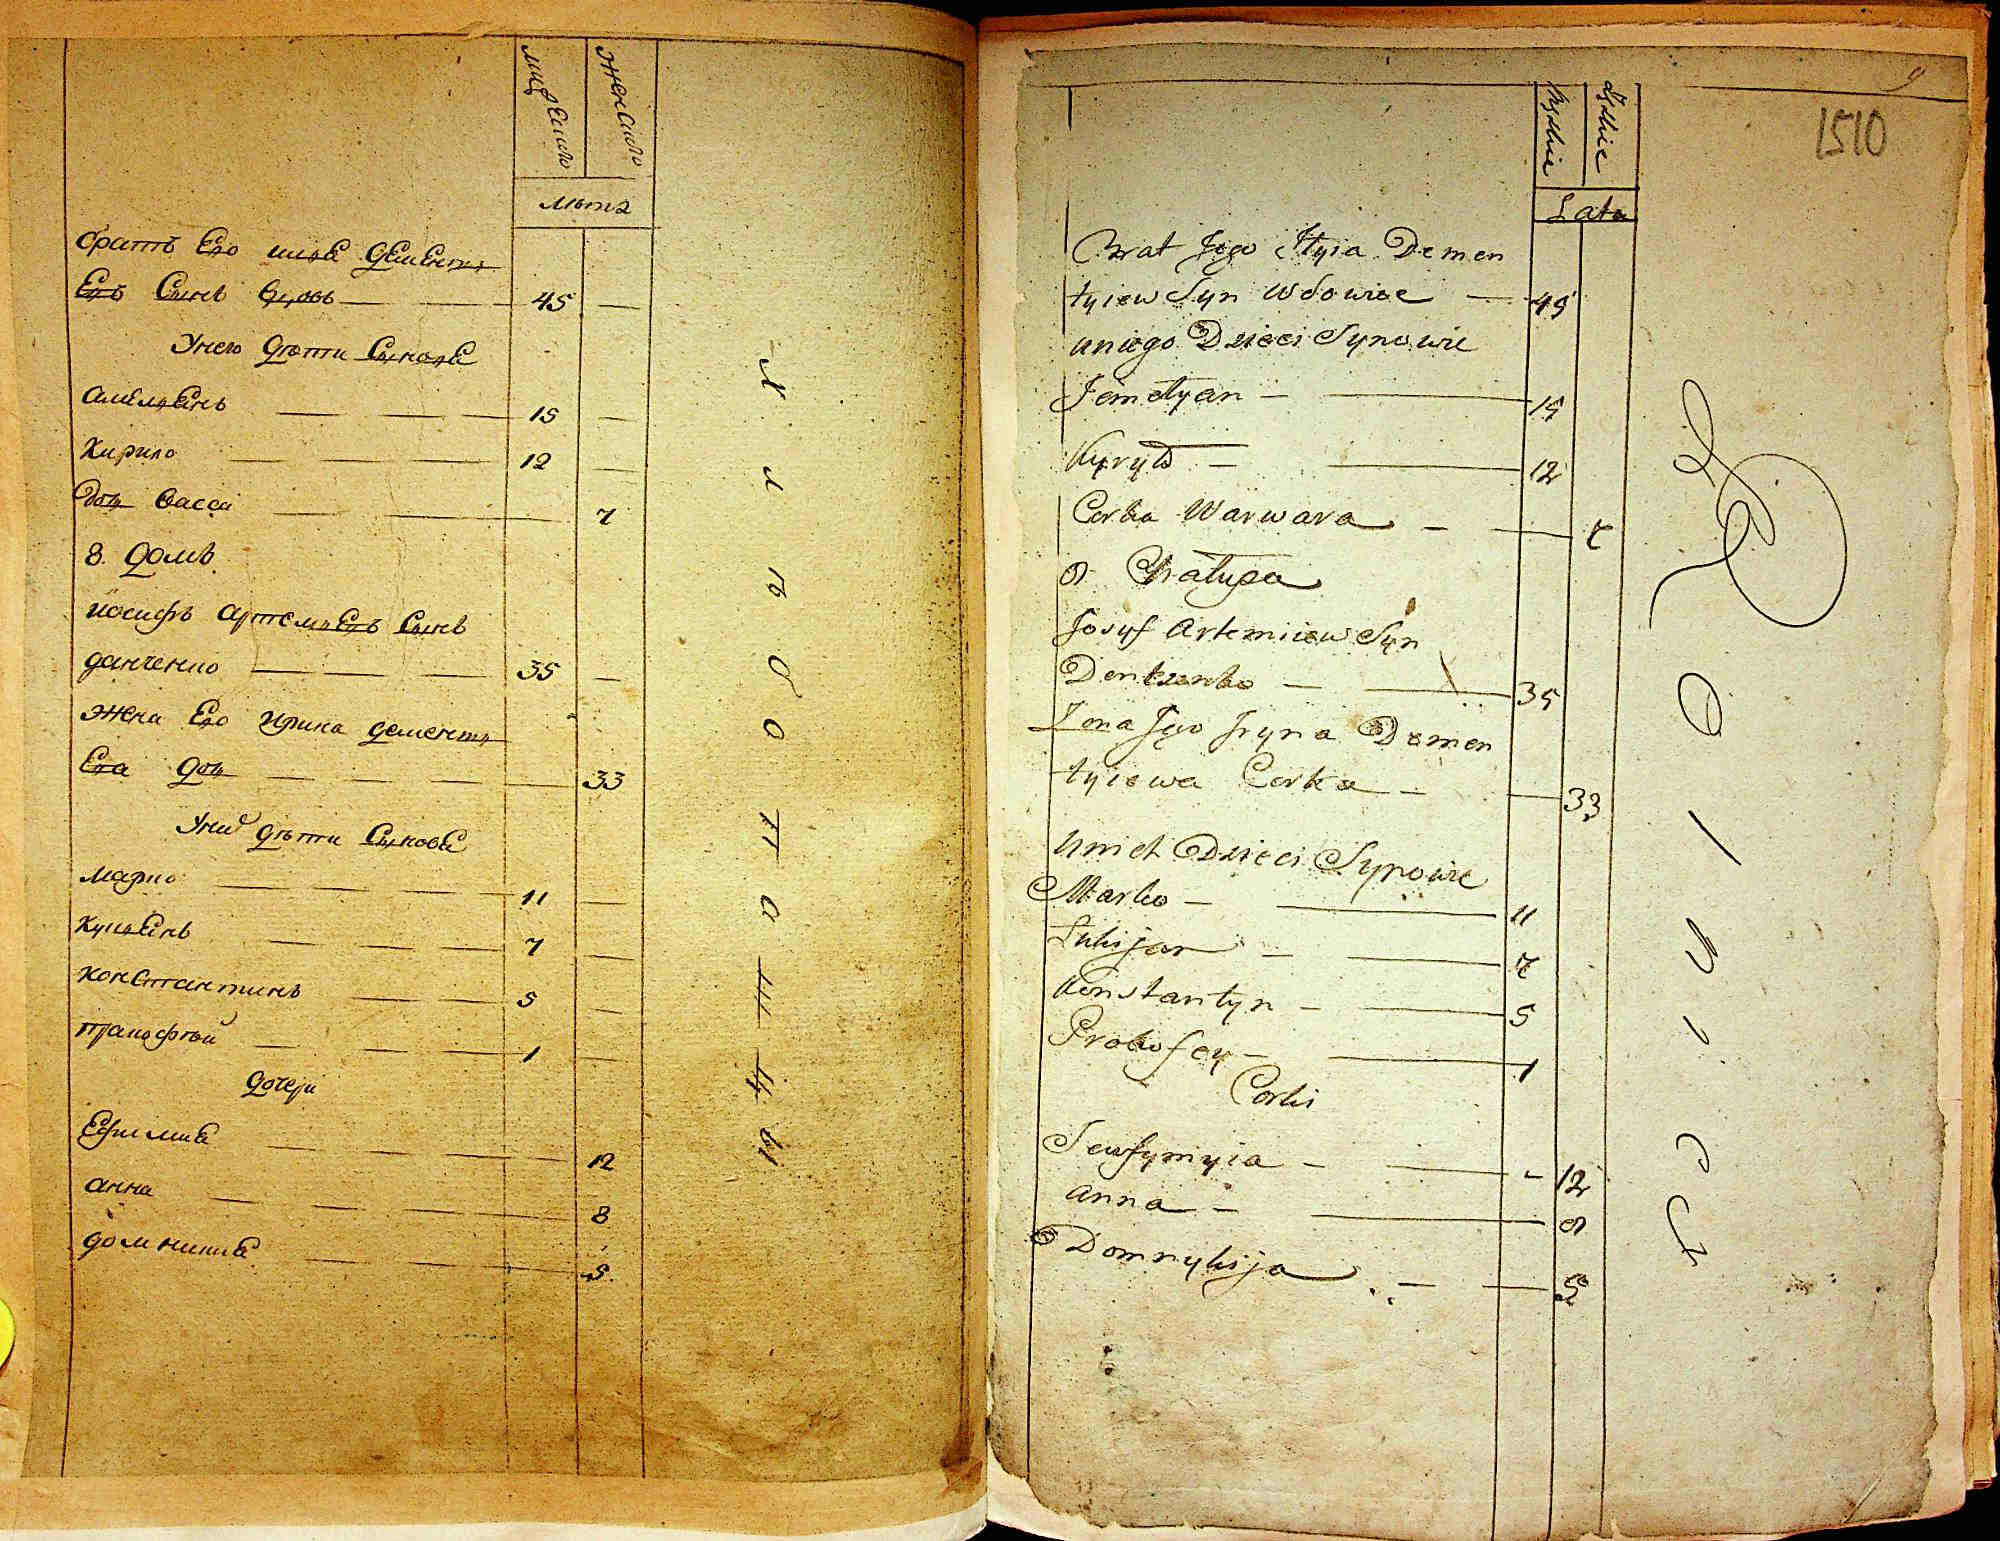 мужеско
женско
Лета
братъ Его илия дементи
Евъ Сынъ вдовъ 45
Унего дѣти Сыновя
амельянъ 15
Кирило 12
дочь васса 7
8 домъ
иосифъ артемиевъ Сынъ
данченко 35
жена Его ирина дементи
Ева дочь 33
Уних дѣти Сыновя
марко 11
Кулиянъ 7
константинъ 5
пракофѣй 1
дочери
Ефимия 12
анна 8
домникия 5
1510
Lata
Brat Jego Ilyia Demen
tyiew Syn Wdowiec 45
uniego Dzieci Synowie
Jemelyan 15
Kyryło 12
Corka Warwara 7
8 Chałupa
Josyf Artemiiew Syn
Denczenko 35
Zona Jego Iryna Demen
tyiewa Corka 33
unich Dzieci Synowie
Marko 11
Konstantyn 5
Prokofey 1
Corki
Jewfymyia 12
anna 8
Domnykija 5